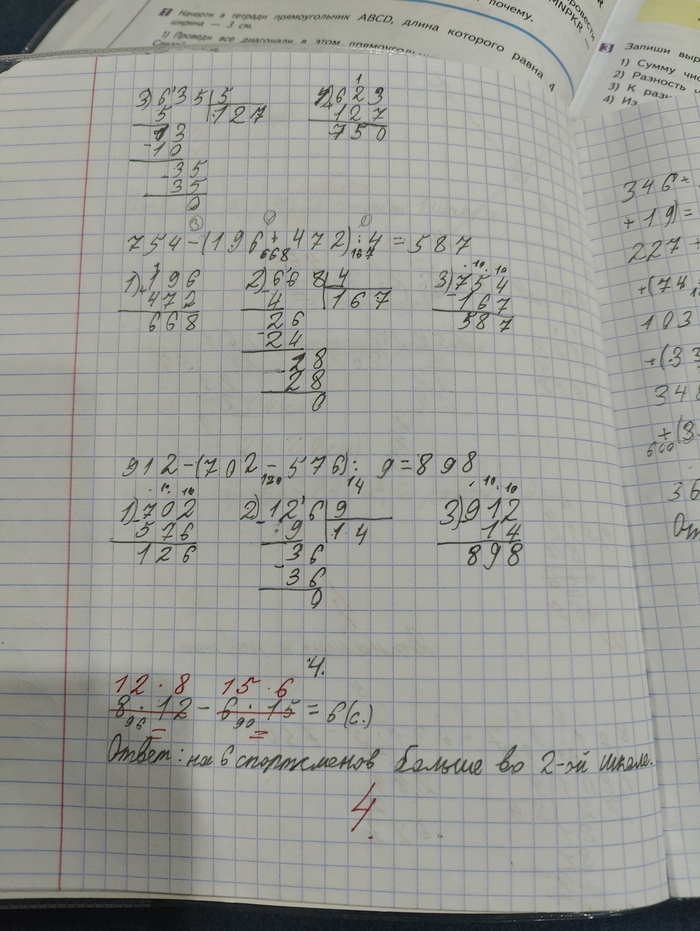 1 Начерти в тетради прямоугольник ABCD, длина которого равна 4
ширина — 3 см.
1) Проведи все диагонали в этом
почему.
MNPKR —
3 Запиши
1) Сумму
2) Разность
3) К
4) Из
3) 635 | 5
5 127
13
10
35
35
0
4) 623
127
750
754-(196+472):4=587
668 167
1) 196
472
668
2) 668 | 4
4 167
26
24
28
28
0
3) 754
167
587
912-(702-576):9=898
14
1) 702
576
126
2) 126 | 9
9 14
36
36
0
3) 912
14
898
4.
12·8 15·6
8·12-6·15=6(с.)
96 90
Ответ: на 6 спортсменов больше во 2-ой школе.
4
346+
+19)=
227+
+(74
103
+(33
348
+(3
600
36
От